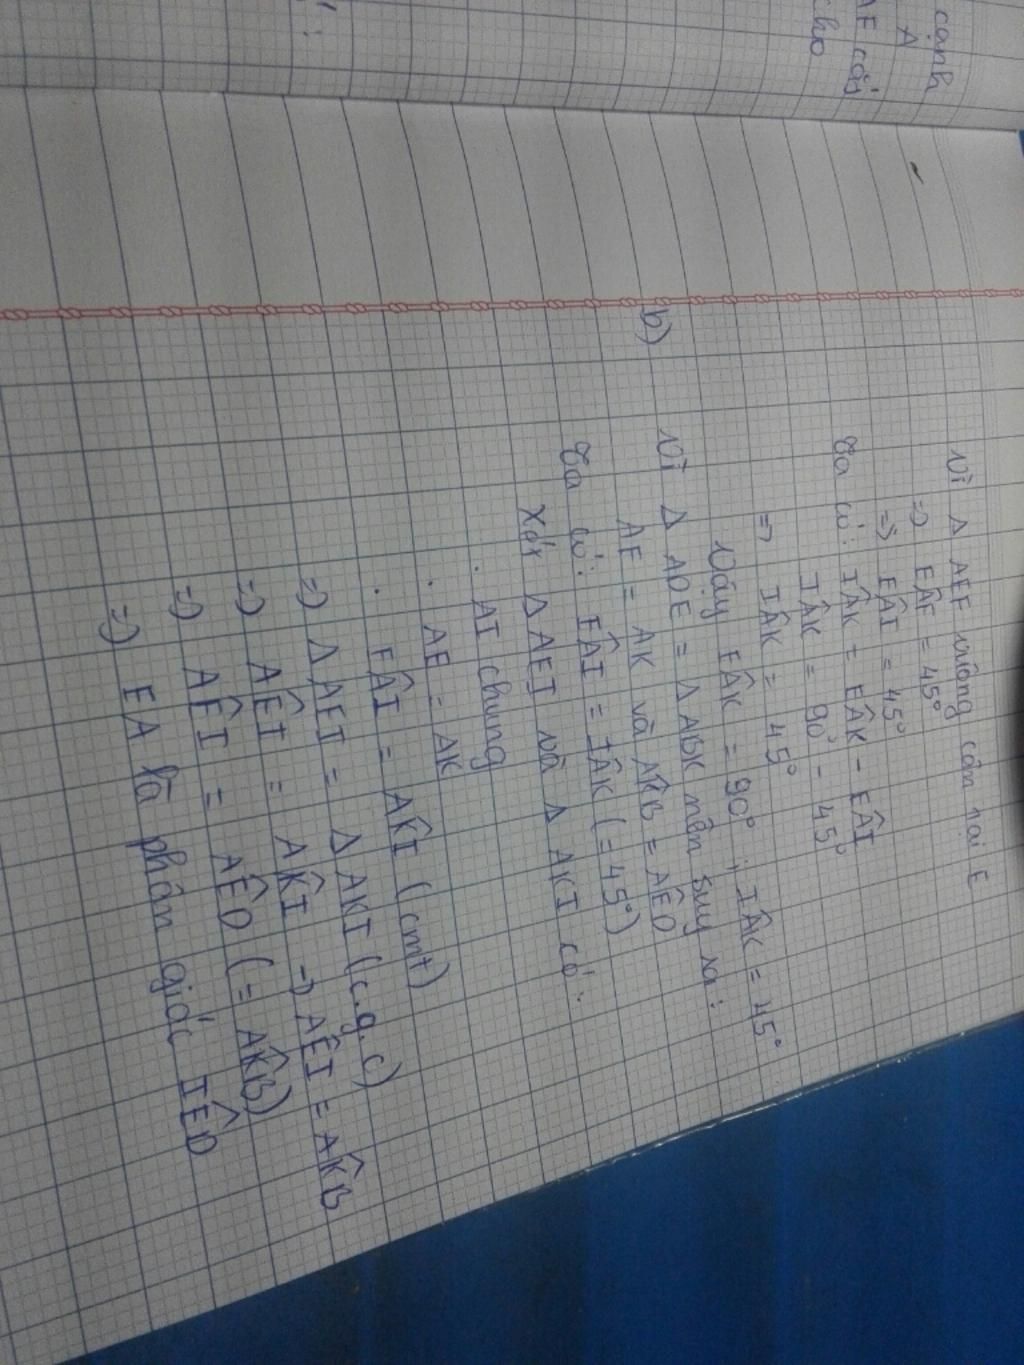 cạnh
A
AE cắt
cho
Vì Δ AEF vuông cân tại E
=> EÂF = 45°
=> EÂI = 45°
Ta có: IÂK = EÂK - EÂI
IÂK = 90° - 45°
=> IÂK = 45°
Vậy EÂK = 90° ; IÂK = 45°
b) Vì Δ ADE = Δ ABK nên suy ra:
AE = AK và AK̂B = AÊD
Ta có: EÂI = IÂK (= 45°)
Xét Δ AEI và Δ AKI có:
. AI chung
. AE = AK
. EÂI = AK̂I (cmt)
=> Δ AEI = Δ AKI (c.g.c)
=> AÊI = AK̂I -> AÊI = AK̂B
=> AÊI = AÊD (= AK̂B)
=> EA là phân giác IÊD